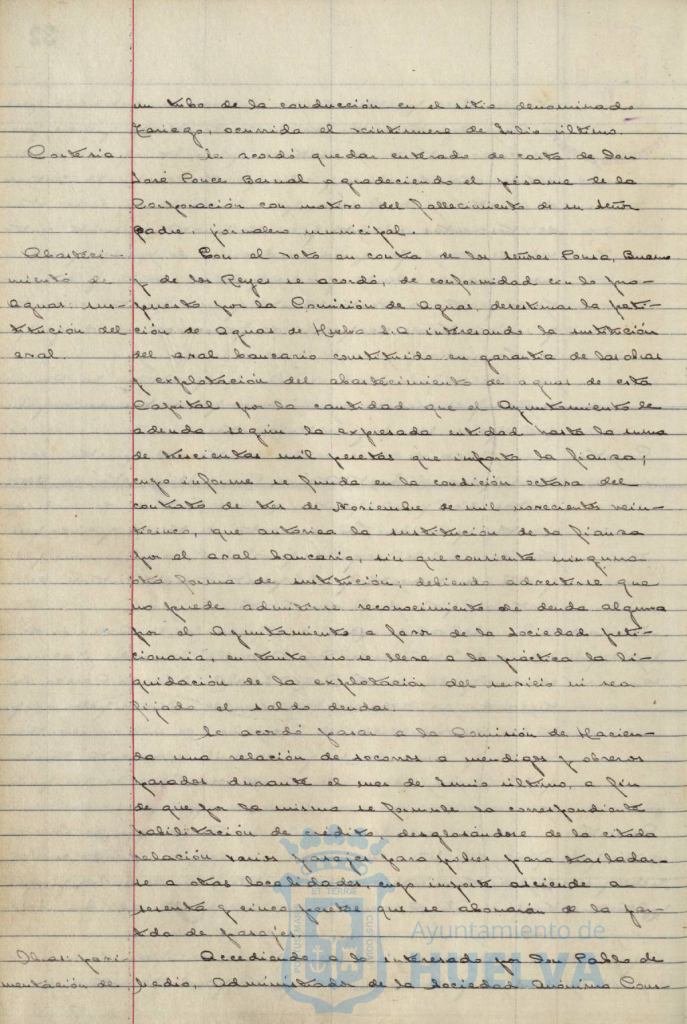 un tubo de la conducción en el sitio denominado
Tariego, ocurrida el veintinueve de Julio último.
Cortesia. Se acordó quedar enterado de carta de Don
José Ponce Bernal agradeciendo el pésame de la
Corporación con motivo del fallecimiento de su señor
padre, jornalero municipal.
Abasteci- Con el voto en contra de los señores Ponce, Bueno
miento de y de los Reyes se acordó, de conformidad con lo pro-
Aguas: sus- puesto por la Comisión de Aguas, desestimar la peti-
titución del ción de Aguas de Huelva S.A. interesando la sustitución
aval. del aval bancario constituido en garantía de las obras
y explotación del abastecimiento de aguas de esta
Capital por la cantidad que el Ayuntamiento le
adeuda según la expresada entidad hasta la suma
de trescientas mil pesetas que importa la fianza;
cuyo informe se funda en la condición octava del
contrato de tres de Noviembre de mil novecientos vein-
ticinco, que autoriza la sustitución de la fianza
por el aval bancario, sin que consienta ninguna
otra forma de sustitución, debiendo advertirse que
no puede admitirse reconocimiento de deuda alguna
por el Ayuntamiento a favor de la Sociedad peti-
cionaria, en tanto no se lleve a la práctica la li-
quidación de la explotación del servicio ni sea
fijado el saldo deudor.
Se acordó pasar a la Comisión de Hacien-
da una relación de socorros a mendigos y obreros
parados durante el mes de Junio último, a fin
de que por la misma se formule la correspondiente
habilitación de crédito, desglosándose de la citada
relación varios pasajes para pobres para trasladar-
se a otras localidades, cuyo importe asciende a
sesenta y cinco pesetas que se abonarán de la par-
tida de pasajes.
Obras: pavi- Accediendo a lo interesado por Don Pablo de
mentación de Pedio, Administrador de la Sociedad Anónima Cons-
Ayuntamiento de
HUELVA